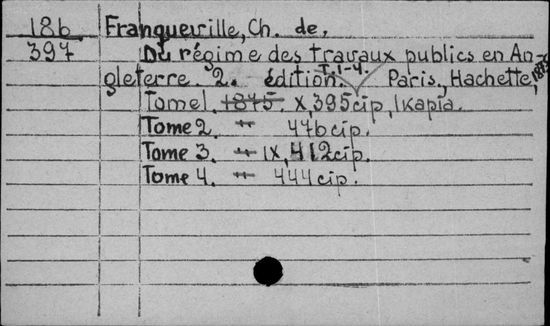 186 Franqueville, Ch. de.
397 Du régime des travaux publics en An-
T. 1-4.
gleterre. 2. édition. Paris, Hachette, 1875
Tome 1. 1875. X, 395 cip, 1 kapía.
Tome 2. -"- 476 cip.
Tome 3. -"- IX, 412 cip.
Tome 4. -"- 444 cip.